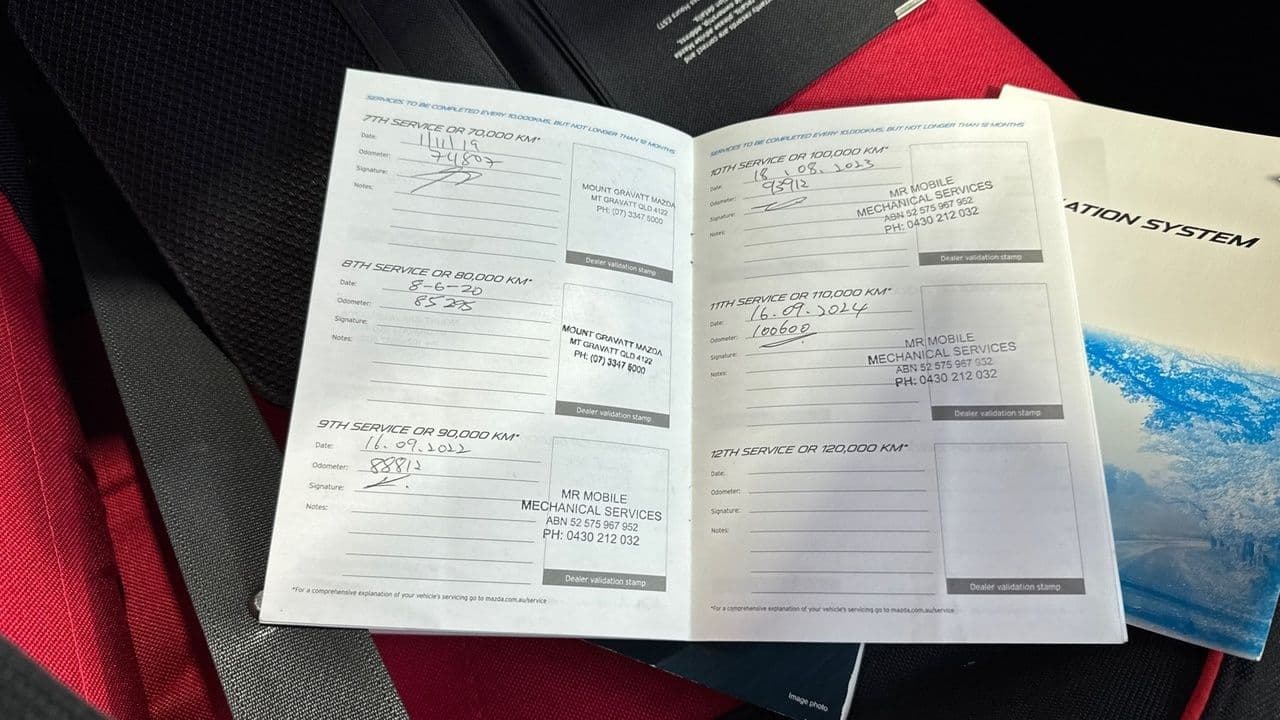 SERVICES TO BE COMPLETED EVERY 10,000KMS, BUT NOT LONGER THAN 12 MONTHS
7TH SERVICE OR 70,000 KM*
Date: 1/11/19
Odometer: 74807
Signature:
Notes:
MOUNT GRAVATT MAZDA
MT GRAVATT QLD 4122
PH: (07) 3347 5000
Dealer validation stamp
8TH SERVICE OR 80,000 KM*
Date: 8-6-20
Odometer: 85295
Signature:
Notes:
MOUNT GRAVATT MAZDA
MT GRAVATT QLD 4122
PH: (07) 3347 5000
Dealer validation stamp
9TH SERVICE OR 90,000 KM*
Date: 16.09.2022
Odometer: 88812
Signature:
Notes:
MR MOBILE
MECHANICAL SERVICES
ABN 52 575 967 952
PH: 0430 212 032
Dealer validation stamp
*For a comprehensive explanation of your vehicle's servicing go to mazda.com.au/service
SERVICES TO BE COMPLETED EVERY 10,000KMS, BUT NOT LONGER THAN 12 MONTHS
10TH SERVICE OR 100,000 KM*
Date: 18.08.2023
Odometer: 93912
Signature:
Notes:
MR MOBILE
MECHANICAL SERVICES
ABN 52 575 967 952
PH: 0430 212 032
Dealer validation stamp
11TH SERVICE OR 110,000 KM*
Date: 16.09.2024
Odometer: 100600
Signature:
Notes:
MR MOBILE
MECHANICAL SERVICES
ABN 52 575 967 952
PH: 0430 212 032
Dealer validation stamp
12TH SERVICE OR 120,000 KM*
Date:
Odometer:
Signature:
Notes:
Dealer validation stamp
*For a comprehensive explanation of your vehicle's servicing go to mazda.com.au/service
ATION SYSTEM
Image photo